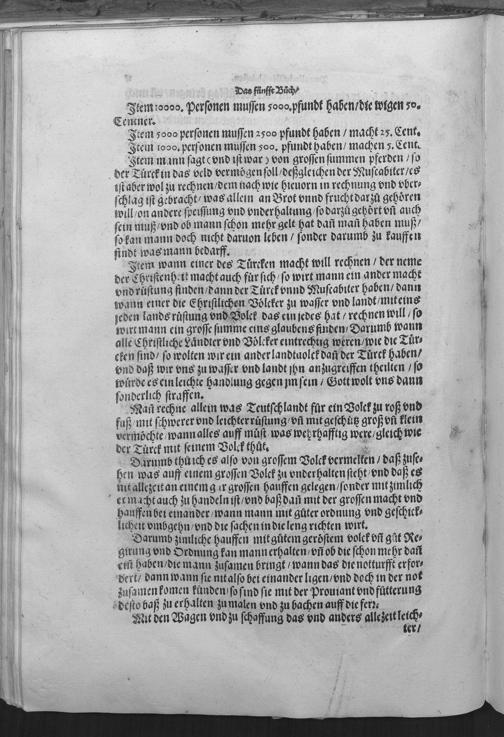 Das fünffte Büch/
Item 10000. Personen mussen 5000. pfundt haben/die wigen 50.
Centner.
Item 5000 personen mussen 2500 pfundt haben / macht 25. Cent.
Item 1000. personen mussen 500. pfundt haben/ machen 5. Cent.
Item mann sagt (vnd ist war) von grossen summen pferden / so
der Türck in das veld vermögen soll/deßgleichen der Muscabiter/es
ist aber wol zu rechnen/dem nach wie hieuorn in rechnung vnd vber-
schlag ist gebracht/was allein an Brot vnnd frucht darzü gehören
will/on andere speissung vnd vnderhaltung/so darzü gehört vñ auch
sein muß/vnd ob mann schon mehr gelt hat dañ mañ haben muß/
so kan mann doch nicht daruon leben / sonder darumb zu kauffen
findt was mann bedarff.
Item wann einer des Türcken macht will rechnen / der neme
der Christenheit macht auch für sich/ so wirt mann ein ander macht
vnd rüstung finden/dann der Türck vnnd Muscabiter haben/dann
wann einer die Christlichen Völcker zu wasser vnd landt/mit eins
jeden lands rüstung vnd Volck das ein jedes hat / rechnen will / so
wirt mann ein grosse summe eins glaubens finden/Darumb wann
alle Christliche Länder vnd Völcker eintrechtig weren/wie die Tür-
cken sind/ so wolten wir ein ander landtuolck dañ der Türck haben/
vnd daß wir vns zu wasser vnd landt jhn anzugreiffen theilten / so
würde es ein leichte handlung gegen jm sein / Gott wolt vns dann
sonderlich straffen.
Mañ rechne allein was Teutschlandt für ein Volck zu roß vnd
füß/mit schwerer vnd leichter rüstung/vñ mit geschütz groß vñ klein
vermöchte/wann alles auff müst was wehrhafftig were/gleich wie
der Türck mit seinem Volck thüt.
Darumb thü ich es also von grossem Volck vermelten / daß zuse-
hen was auff einem grossen Volck zu vnderhalten steht/ vnd daß es
nit allezeit an einem gar grossen hauffen gelegen/sonder mit zimlich
er macht auch zu handeln ist/vnd baß dañ mit der grossen macht vnd
hauffen bei einander/wann mann mit güter ordnung vnd geschick-
lichen vmbgehn/vnd die sachen in die leng richten wirt.
Darumb zimliche hauffen mit gütem geröstem volck vñ güt Re-
girung vnd Ordnung kan mann erhalten/vñ ob die schon mehr dañ
ein haben/die mann zusamen bringt/wann das die notturfft erfor-
dert/dann wann sie nit also bei einander ligen/vnd doch in der not
zusamen komen künden/so sind sie mit der Prouiant vnd fütterung
desto baß zu erhalten/zu malen vnd zu bachen auff die ferr.
Mit den Wagen vnd zu schaffung das vnd anders allezeit leich-
ter/